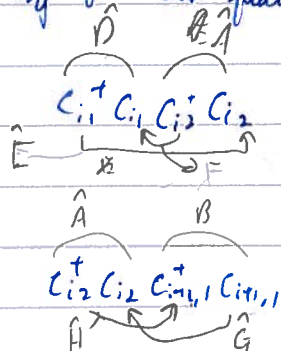 D̂ Â
C_{i1}^+ C_{i1} C_{i2}^+ C_{i2}
Ê F
Â B
C_{i2}^+ C_{i2} C_{i+1,1}^+ C_{i+1,1}
Ĥ Ĝ